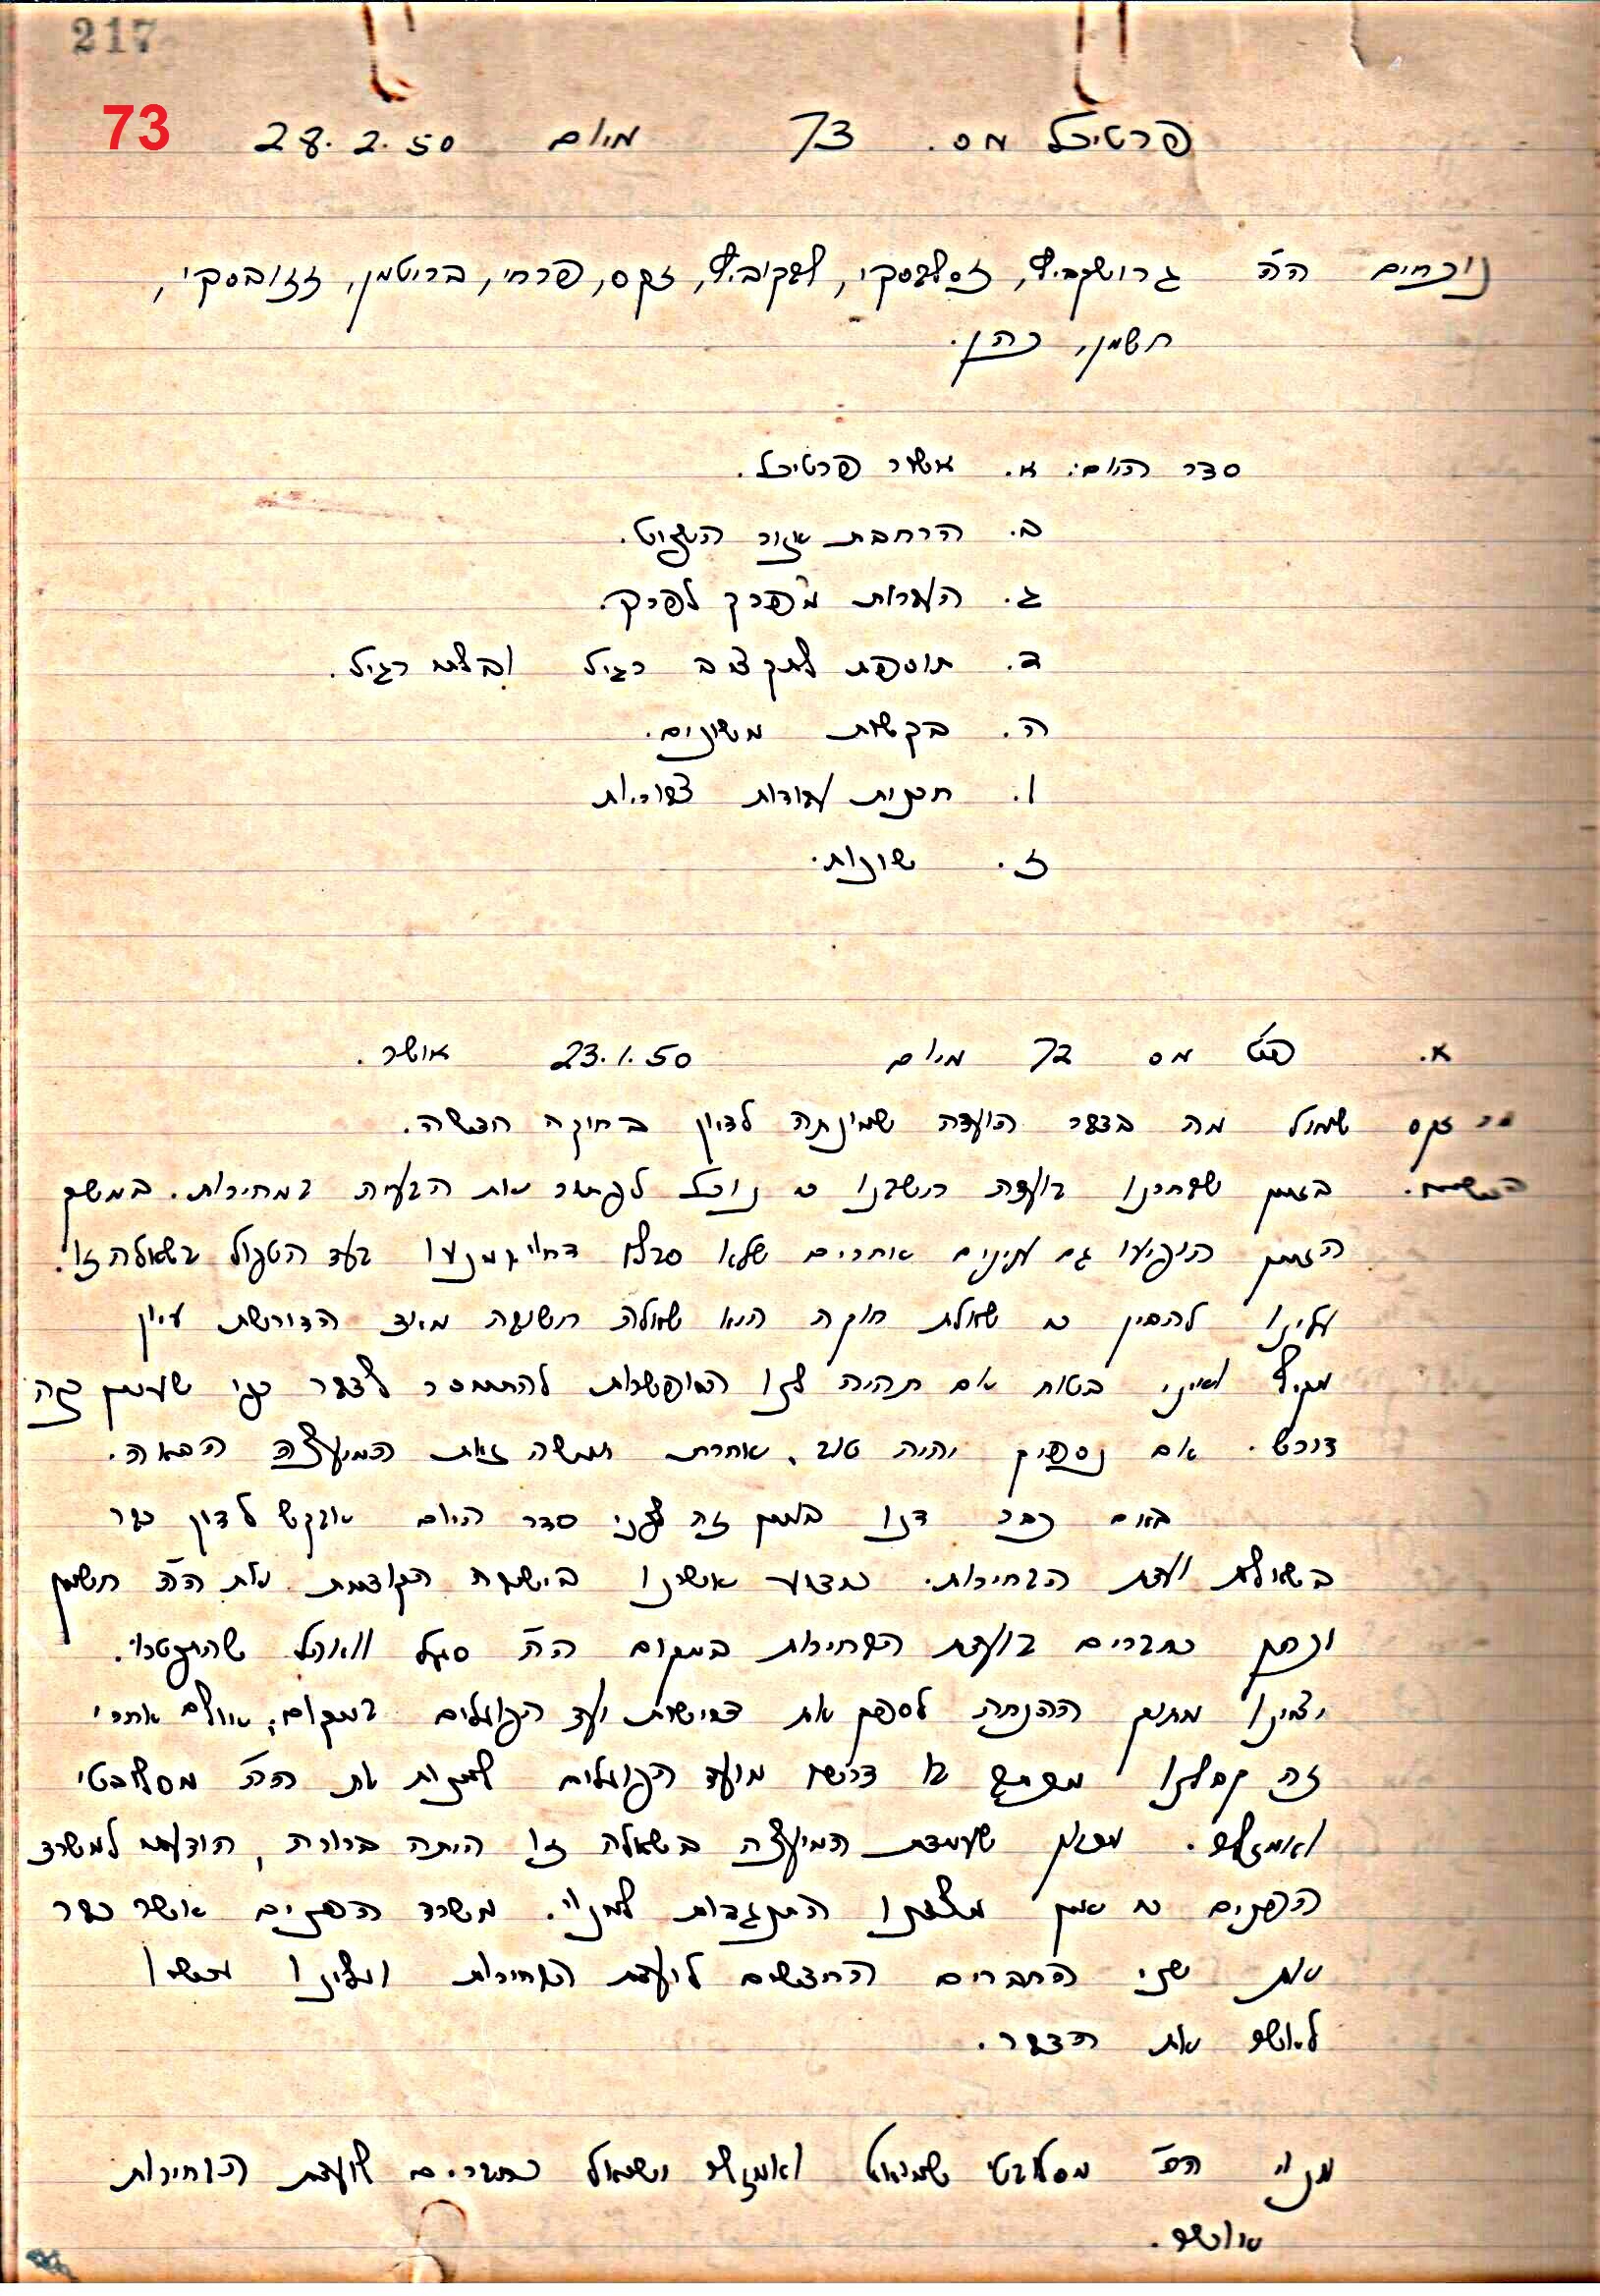 217
73
פרטיכל מס. 73 מיום 28.2.50
נוכחים הה' גרושקביץ, זסלבסקי, לפקוביץ, זקס, פרחי, ברוטמן, זזובסקי,
חשמן, כהן.
סדר היום: א. אשור פרטיכל.
ב. הרחבת אזור השפוט.
ג. הערות מפרק לפרק.
ד. תוספת לתקציב רגיל ובלתי רגיל.
ה. בקשות משונים.
ו. תכנית עבודות צבוריות
ז. שונות.
א. פרט' מס 72 מיום 23.1.50 אושר.
מר זקס שואל מה בדבר הועדה שמונתה לדיון בחוקה חדשה.
בזמן שבחרנו בועדה חשבנו כי נוכל לפתור את הבעיה במהירות. במשך
הזמן הופיעו גם ענינים אחרים שלא סבלו דחוי ומנעו בעד הטפול בשאלה זו.
עלינו להבין כי שאלת חוקה היא שאלה חשובה מאוד הדורשת עיון
מקיף ואיני בטוח אם תהיה לנו האפשרות להתמסר לדבר כפי שענין כזה
דורש. אם נספיק יהיה טוב, אחרת תעשה זאת המועצה הבאה.
באם כבר דנו בענין זה לפני סדר היום אבקש לדון כבר
בשאלת ועדת הבחירות. כידוע אשרנו בישיבה הקודמת את הה' חשמן
וכהן כחברים בועדת הבחירות במקום הה' סגל וואהל שהתפטרו.
יצאנו מתוך ההנחה לספק את דרישות ועד הפועלים במקום, אולם אחרי
זה קבלנו מכתב בו דרשו מועד הפועלים למנות את הה' מסלובטי
ואמזלג. מכיון שעמדת המועצה בשאלה זו היתה ברורה, הודענו למשרד
הפנים כי אין מצדנו התנגדות למנוי. משרד הפנים אשר כבר
את שני החברים החדשים לועדת הבחירות ועלינו עכשו
לאשר את הדבר.
מנוי הה' מסלובטי שמואל ואמזלג ישראל כחברים לועדת הבחירות
אושר.